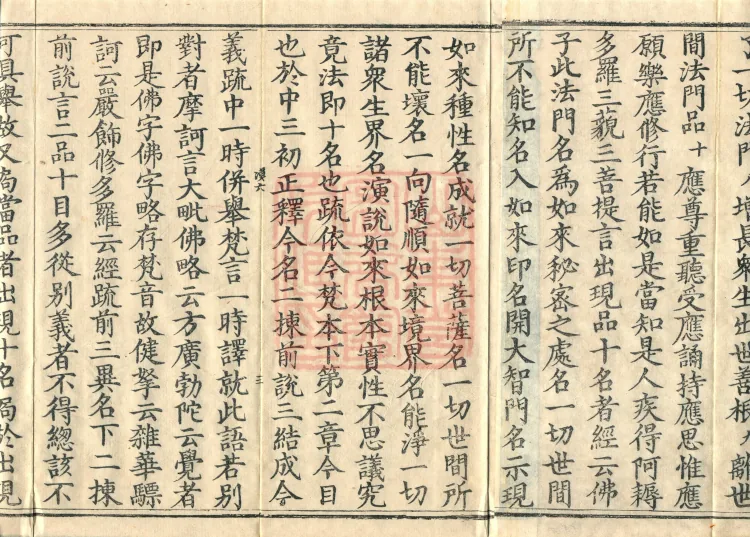 一切法門人增長衆生出世善根令離世
間法門品十應尊重聽受應誦持應思惟應
願樂應修行若能如是當知是人疾得阿耨
多羅三藐三菩提言出現品十名者經云佛
子此法門名爲如來秘密之處名一切世間
所不能知名入如來印名開大智門名示現
如來種性名成就一切菩薩名一切世間所
不能壞名一向隨順如來境界名能淨一切
諸衆生界名演說如來根本實性不思議究
竟法即十名也疏依今梵本下第二章今目
也於中三初正釋今名二揀前說三結成今
漢六 三
義疏中一時併舉梵言一時譯就此語若別
對者摩訶言大毗佛略云方廣勃陀云覺者
即是佛字佛字略存梵音故健拏云雜華驃
訶云嚴飾修多羅云經疏前三異名下二揀
前說言二品十目多從別義者不得總該不
可具舉故又局當品者出現十名局於出現